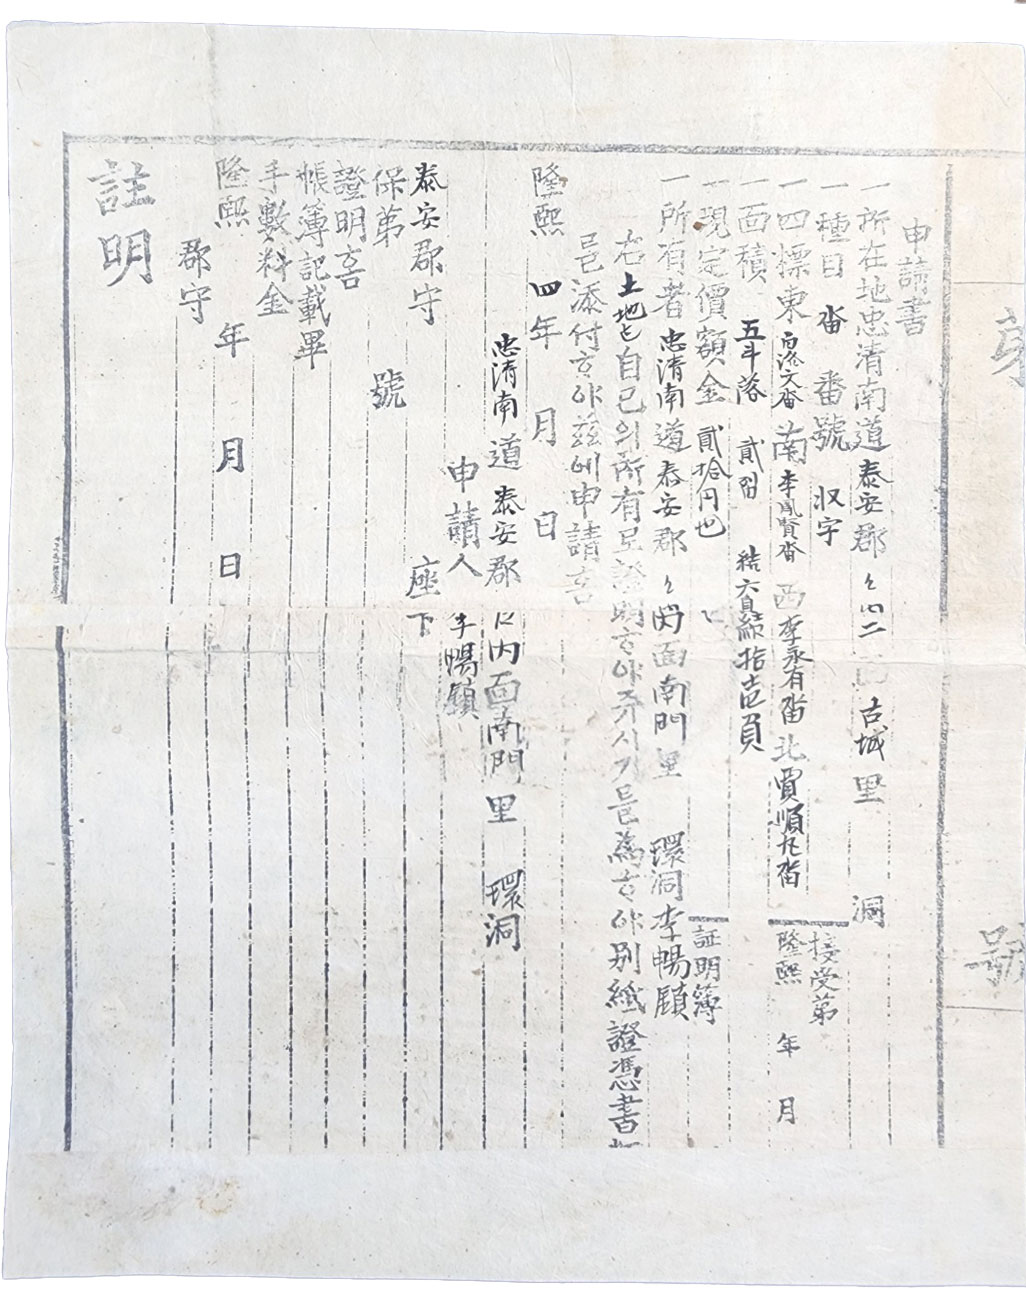 第
號
申請書
一所在地忠清南道泰安郡 古城里 洞
一種目 畓 番號 収字
接受第
一四標東 文畓 南李鳳賢畓 西李永有畓 北賈順九畓
隆熙 年 月
一面積 五斗落 貳 結六負結拾壱負
一現定價額金貳拾円也
証明簿
一所有者忠清南道泰安郡 面南門里 環洞李暢
右土地는自己의所有로證明하야쥬시기를爲하야別紙證憑書類
를添付하야玆에申請홈
隆熙四年 月 日
忠清南道泰安郡 內面南門里 環洞
申請人 李暢鎮
泰安郡守 座下
保第 號
證明홈
帳簿記載畢
手數料金
隆熙 年 月 日
郡守
註明